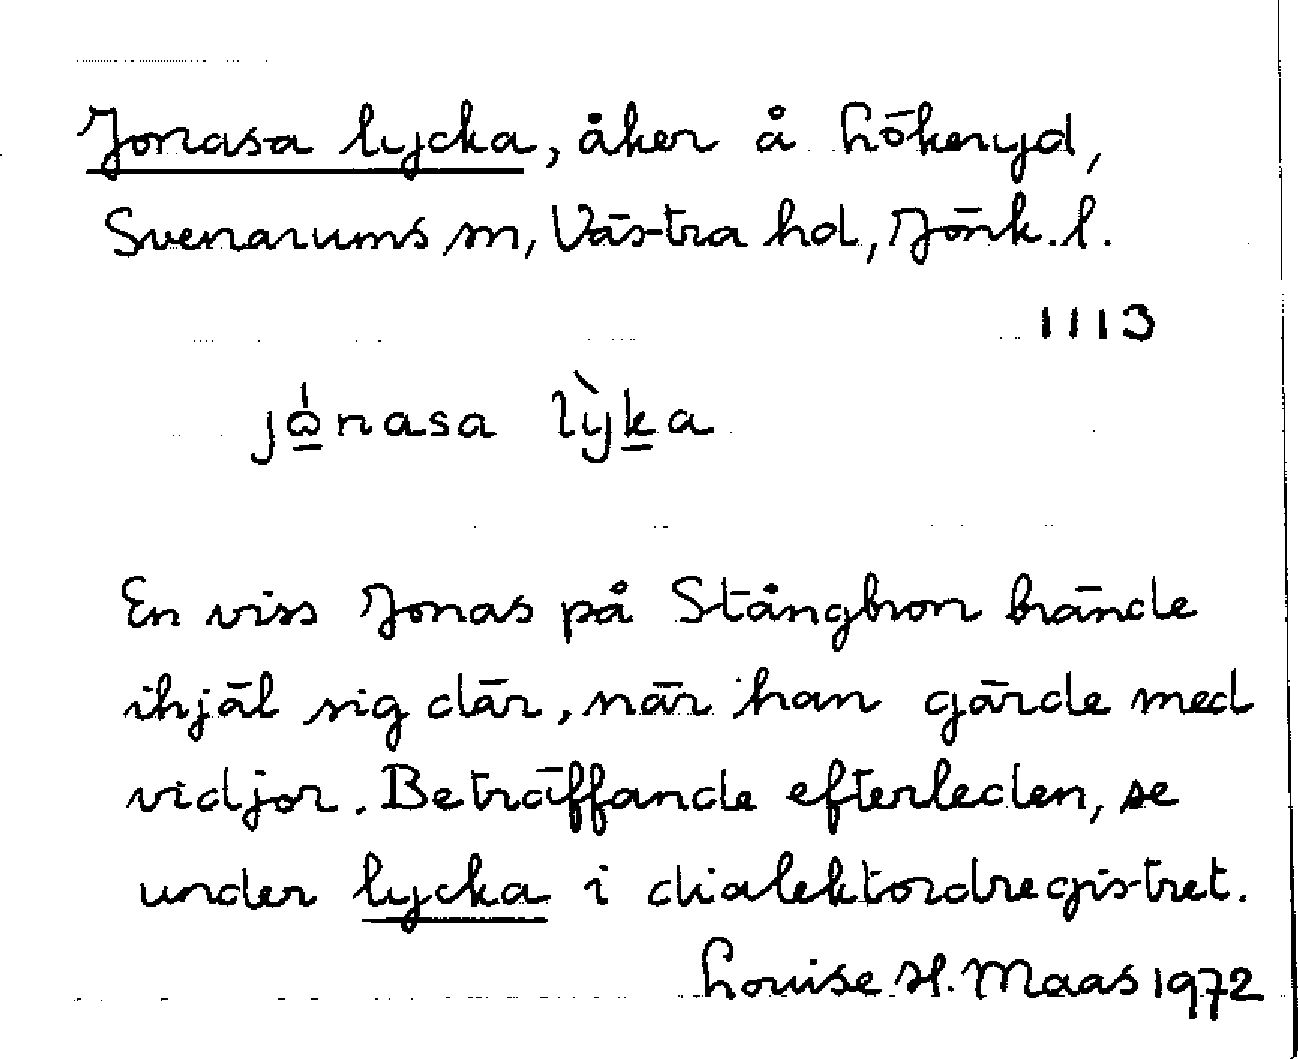 Jonasa lycka, åker å Lökeryd,
Svenarums sn, Västra hd, Jönk. l.
1113
jònasa lỳka
En viss Jonas på Stångbron brände
ihjäl sig där, när han gärde med
vidjor. Beträffande efterleden, se
under lycka i dialektordregistret.
Louise H. Maas 1972